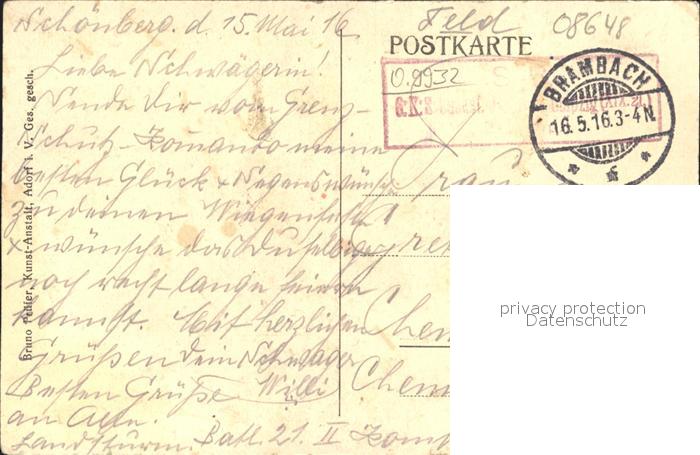 Schönberg. d. 15. Mai 16
Feld
08648
POSTKARTE
Liebe Schwägerin!
0.9932
BRAMBACH
16.5.16.3-4N.
Sende dir vom Grenz-
Schutz-Komando meine
besten Glück + Segenswünsche
zu deinen Wiegenfeste
+ wünsche das du selbiges
noch recht lange feiern
kannst. Mit herzlichen
Grüßen dein Schwager
Willi
Besten Grüße
an Alle.
Landsturm. Batl. 21. II Komp
Frau
Chem
Chem
Bruno Kunst-Anstalt, Adorf i. V. Ges. gesch.
privacy protection
Datenschutz